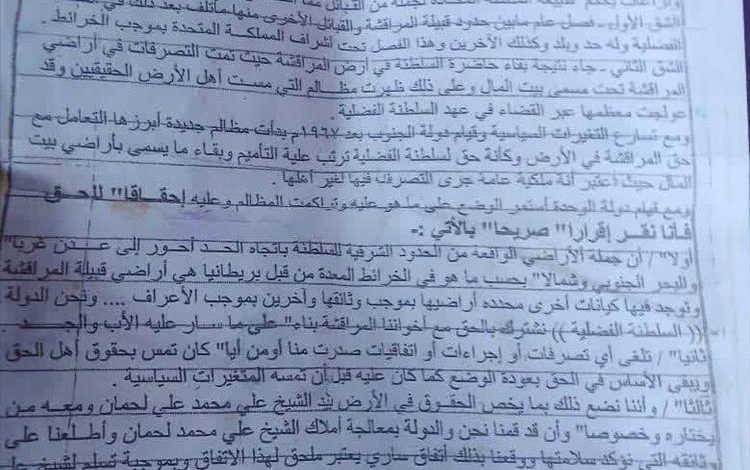 الشق الأول - فصل عام مابين حدود قبيلة المراقشة والقبائل الأخرى منها مآتلف بعد ذلك في
الفضلية وله حد وبلد وكذلك الآخرين وهذا الفصل تحت أشراف المملكة المتحدة بموجب الخرائط .
الشق الثاني - جاه نتيجة بقاء حاضرة السلطنة في أرض المراقشة حيث تمت التصرفات في أراضي
المراقشة تحت مسمى بيت المال وعلى ذلك ظهرت مظالم التي مست أهل الأرض الحقيقيين وقد
عولجت معظمها عبر القضاء في عهد السلطنة الفضلية .
ومع تسارع التغيرات السياسية وقيام دولة الجنوب بعد ١٩٦٧م بدأت مظالم جديدة أبرزها التعامل مع
حق المراقشة في الأرض وكأنة حق لسلطنة الفضلية ترتب علية التأميم وبقاء ما يسمى بأراضي بيت
المال حيث أعتبر أنة ملكية عامة جرى التصرف فيها لغير أهلها .
ومع قيام دولة الوحدة أستمر الوضع على ما هو عليه وتراكمت المظالم وعليه إحقاقا" للحق
فأنا نقر إقرارا" صريحا" بالأتي :-
أولا" / أن جملة الأراضي الواقعه من الحدود الشرقية للسلطنة باتجاه الحد أحور إلى عدن غربا"
والبحر الجنوبي وشمالا" بحسب ما هو في الخرائط المعدة من قبل بريطانيا هي أراضي قبيلة المراقشة
وتوجد فيها كيانات أخرى محدده أراضيها بموجب وثائقها وأخرين بموجب الأعراف .... ونحن الدولة
(( السلطنة الفضلية )) نشترك بالحق مع أخواننا المراقشة بناء" على ما سار عليه الأب والجد .
ثانيا" / تلغى أي تصرفات أو إجراءات أو اتفاقيات صدرت منا أومن أيا" كان تمس بحقوق أهل الحق
ويبقى الأساس في الحق بعودة الوضع كما كان عليه قبل أن تمسه المتغيرات السياسية .
ثالثا" / وأننا نضع ذلك بما يخص الحقوق في الأرض بيد الشيخ علي محمد علي لحمان ومعه من
يختاره وخصوصا" وأن قد قمنا نحن والدولة بمعالجة أملاك الشيخ علي محمد لحمان وأطلعنا على
وثائقه التي تؤكد سلامتها ووقعنا بذلك أتفاق ساري يعتبر ملحق لهذا الاتفاق وبموجبة تسلم لشيخ علي